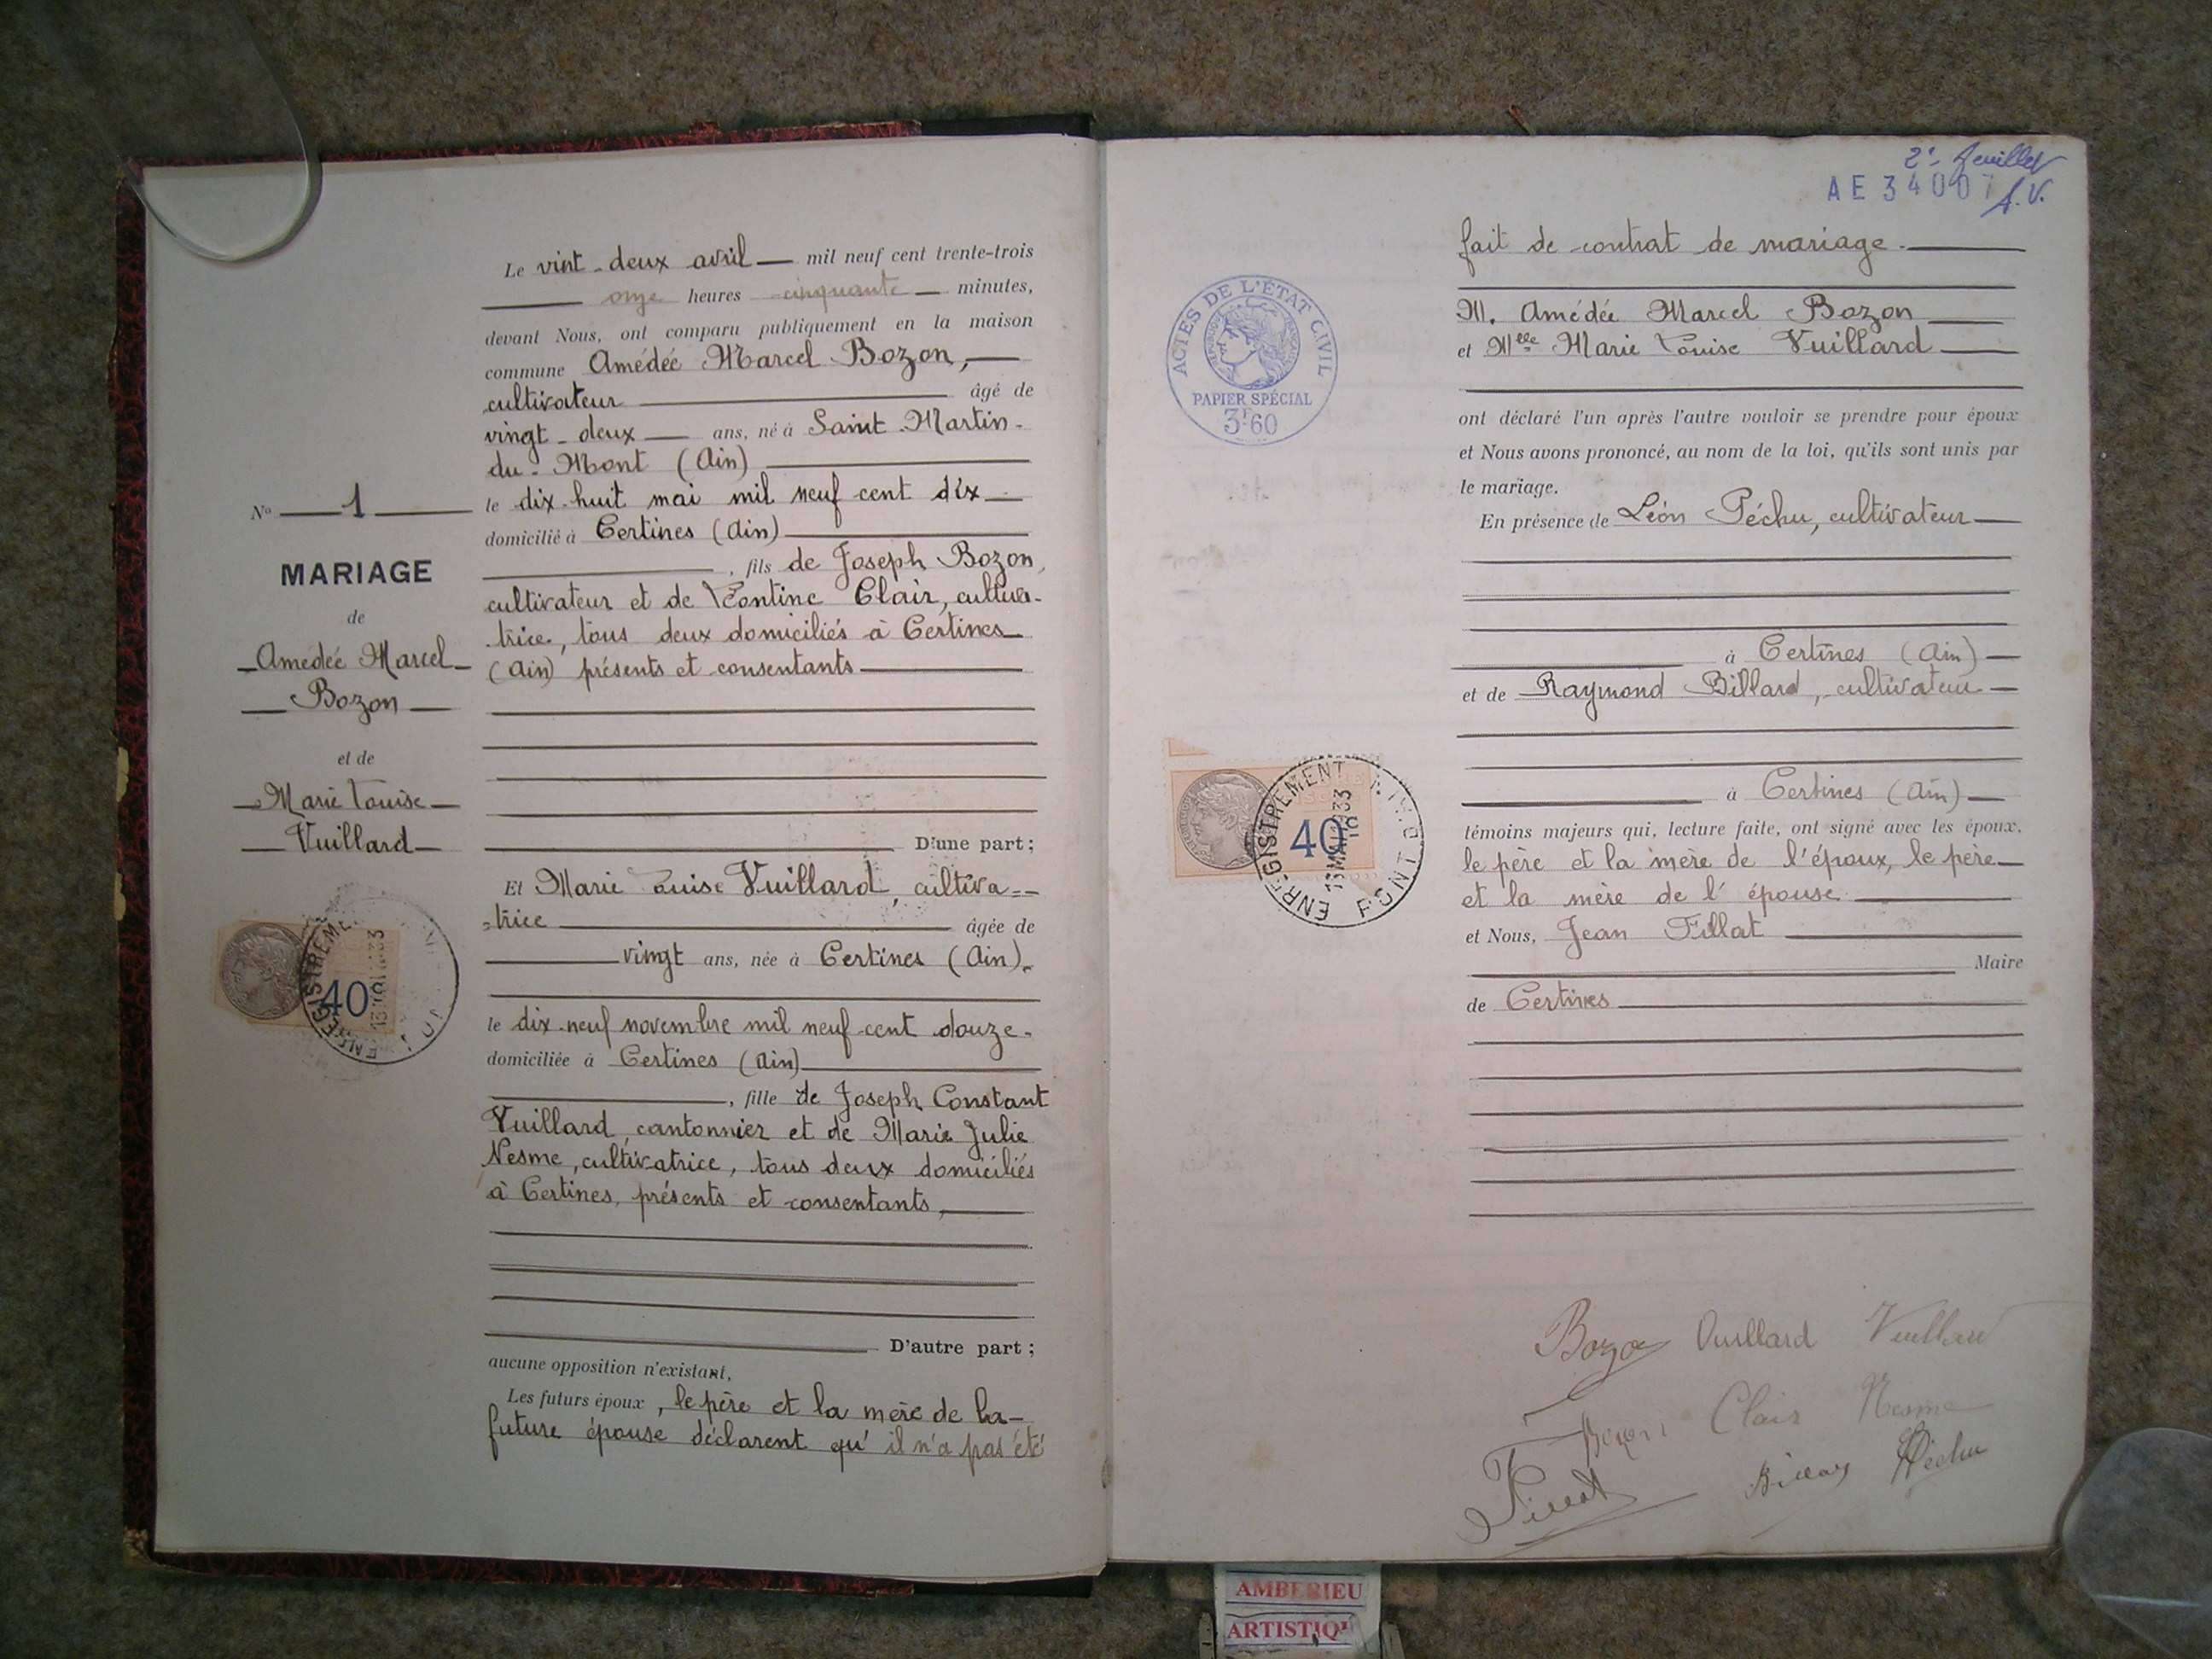 N° 1
MARIAGE
de
Amédée Marcel
Bozon
et de
Marie Louise
Vuillard
ENREGISTREME
40
Le vint-deux avril mil neuf cent trente-trois
onze heures cinquante minutes,
devant Nous, ont comparu publiquement en la maison
commune Amédée Marcel Bozon,
cultivateur âgé de
vingt-deux ans, né à Saint-Martin-
du-Mont (Ain)
le dix-huit mai mil neuf cent dix
domicilié à Certines (Ain)
, fils de Joseph Bozon,
cultivateur et de Léontine Clair, cultiva-
trice, tous deux domiciliés à Certines
(Ain) présents et consentants
D'une part;
Et Marie Louise Vuillard, cultiva-
-trice âgée de
vingt ans, née à Certines (Ain).
le dix-neuf novembre mil neuf cent douze-
domiciliée à Certines (Ain)
, fille de Joseph Constant
Vuillard, cantonnier et de Marie Julie
Nesme, cultivatrice, tous deux domiciliés
à Certines, présents et consentants,
D'autre part;
aucune opposition n'existant,
Les futurs époux, le père et la mère de la
future épouse déclarent qu'il n'a pas été
2e feuillet
AE 34007 A.V.
ACTES DE L'ÉTAT CIVIL
PAPIER SPÉCIAL
3F60
fait de contrat de mariage.
M. Amédée Marcel Bozon
et Mlle Marie Louise Vuillard
ont déclaré l'un après l'autre vouloir se prendre pour époux
et Nous avons prononcé, au nom de la loi, qu'ils sont unis par
le mariage.
En présence de Léon Péchu, cultivateur
à Certines (Ain)
et de Raymond Billard, cultivateur
à Certines (Ain)
témoins majeurs qui, lecture faite, ont signé avec les époux,
le père et la mère de l'époux, le père
et la mère de l'épouse
et Nous, Jean Fillat
Maire
de Certines
ENREGISTREMENT
40
13 MAI 1933
PONT D'AIN
Bozon Vuillard Vuillard
Bozon Clair Nesme
Fillat Billard Péchu
AMBERIEU
ARTISTIQU